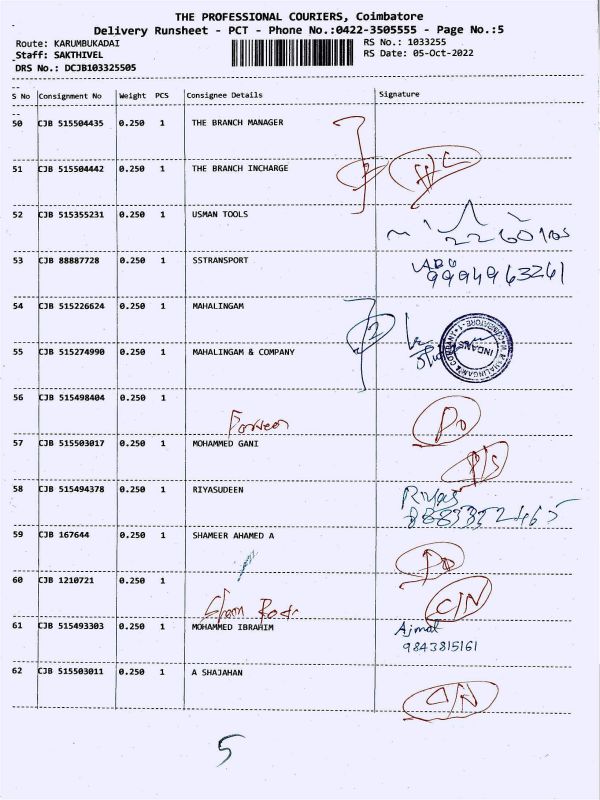 THE PROFESSIONAL COURIERS, Coimbatore
Delivery Runsheet - PCT - Phone No.:0422-3505555 - Page No.:5
Route: KARUMBUKADAI RS No.: 1033255
Staff: SAKTHIVEL RS Date: 05-Oct-2022
DRS No.: DCJB103325505
S No Consignment No Weight PCS Consignee Details Signature
50 CJB 515504435 0.250 1 THE BRANCH MANAGER
51 CJB 515504442 0.250 1 THE BRANCH INCHARGE
52 CJB 515355231 0.250 1 USMAN TOOLS
53 CJB 88887728 0.250 1 SSTRANSPORT
9994963261
54 CJB 515226624 0.250 1 MAHALINGAM
2
55 CJB 515274990 0.250 1 MAHALINGAM & COMPANY
56 CJB 515498404 0.250 1
Parveen
57 CJB 515503017 0.250 1 MOHAMMED GANI
58 CJB 515494378 0.250 1 RIYASUDEEN
Riyas
59 CJB 167644 0.250 1 SHAMEER AHAMED A
60 CJB 1210721 0.250 1
C/N
61 CJB 515493303 0.250 1 MOHAMMED IBRAHIM Ajmal
9843815161
62 CJB 515503011 0.250 1 A SHAJAHAN
5